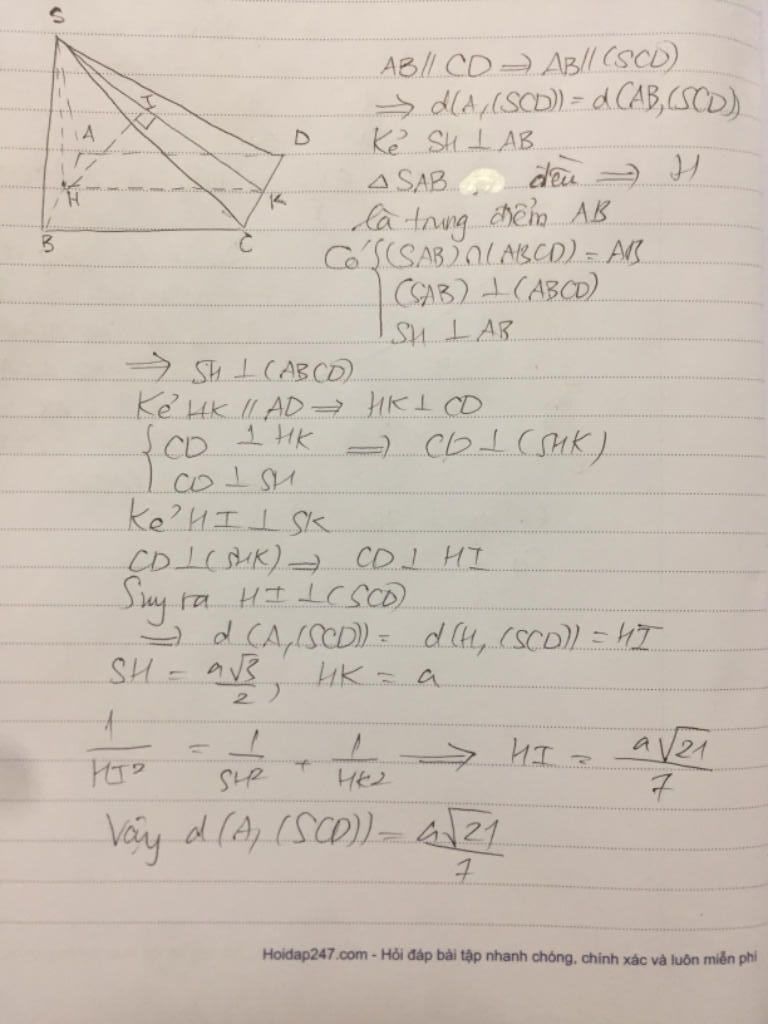 S
I
A
D
H
K
B
C
AB // CD ⇒ AB // (SCD)
⇒ d(A,(SCD)) = d(AB,(SCD))
Kẻ SH ⊥ AB
△ SAB đều ⇒ H
là trung điểm AB
Có { (SAB) ∩ (ABCD) = AB
(SAB) ⊥ (ABCD)
SH ⊥ AB
⇒ SH ⊥ (ABCD)
Kẻ HK // AD ⇒ HK ⊥ CD
{ CD ⊥ HK ⇒ CD ⊥ (SHK)
CD ⊥ SH
Kẻ HI ⊥ SK
CD ⊥ (SHK) ⇒ CD ⊥ HI
Suy ra HI ⊥ (SCD)
⇒ d(A,(SCD)) = d(H,(SCD)) = HI
SH = a√3/2, HK = a
1/HI² = 1/SH² + 1/HK² ⇒ HI = a√21/7
Vậy d(A,(SCD)) = a√21/7
Hoidap247.com - Hỏi đáp bài tập nhanh chóng, chính xác và luôn miễn phí